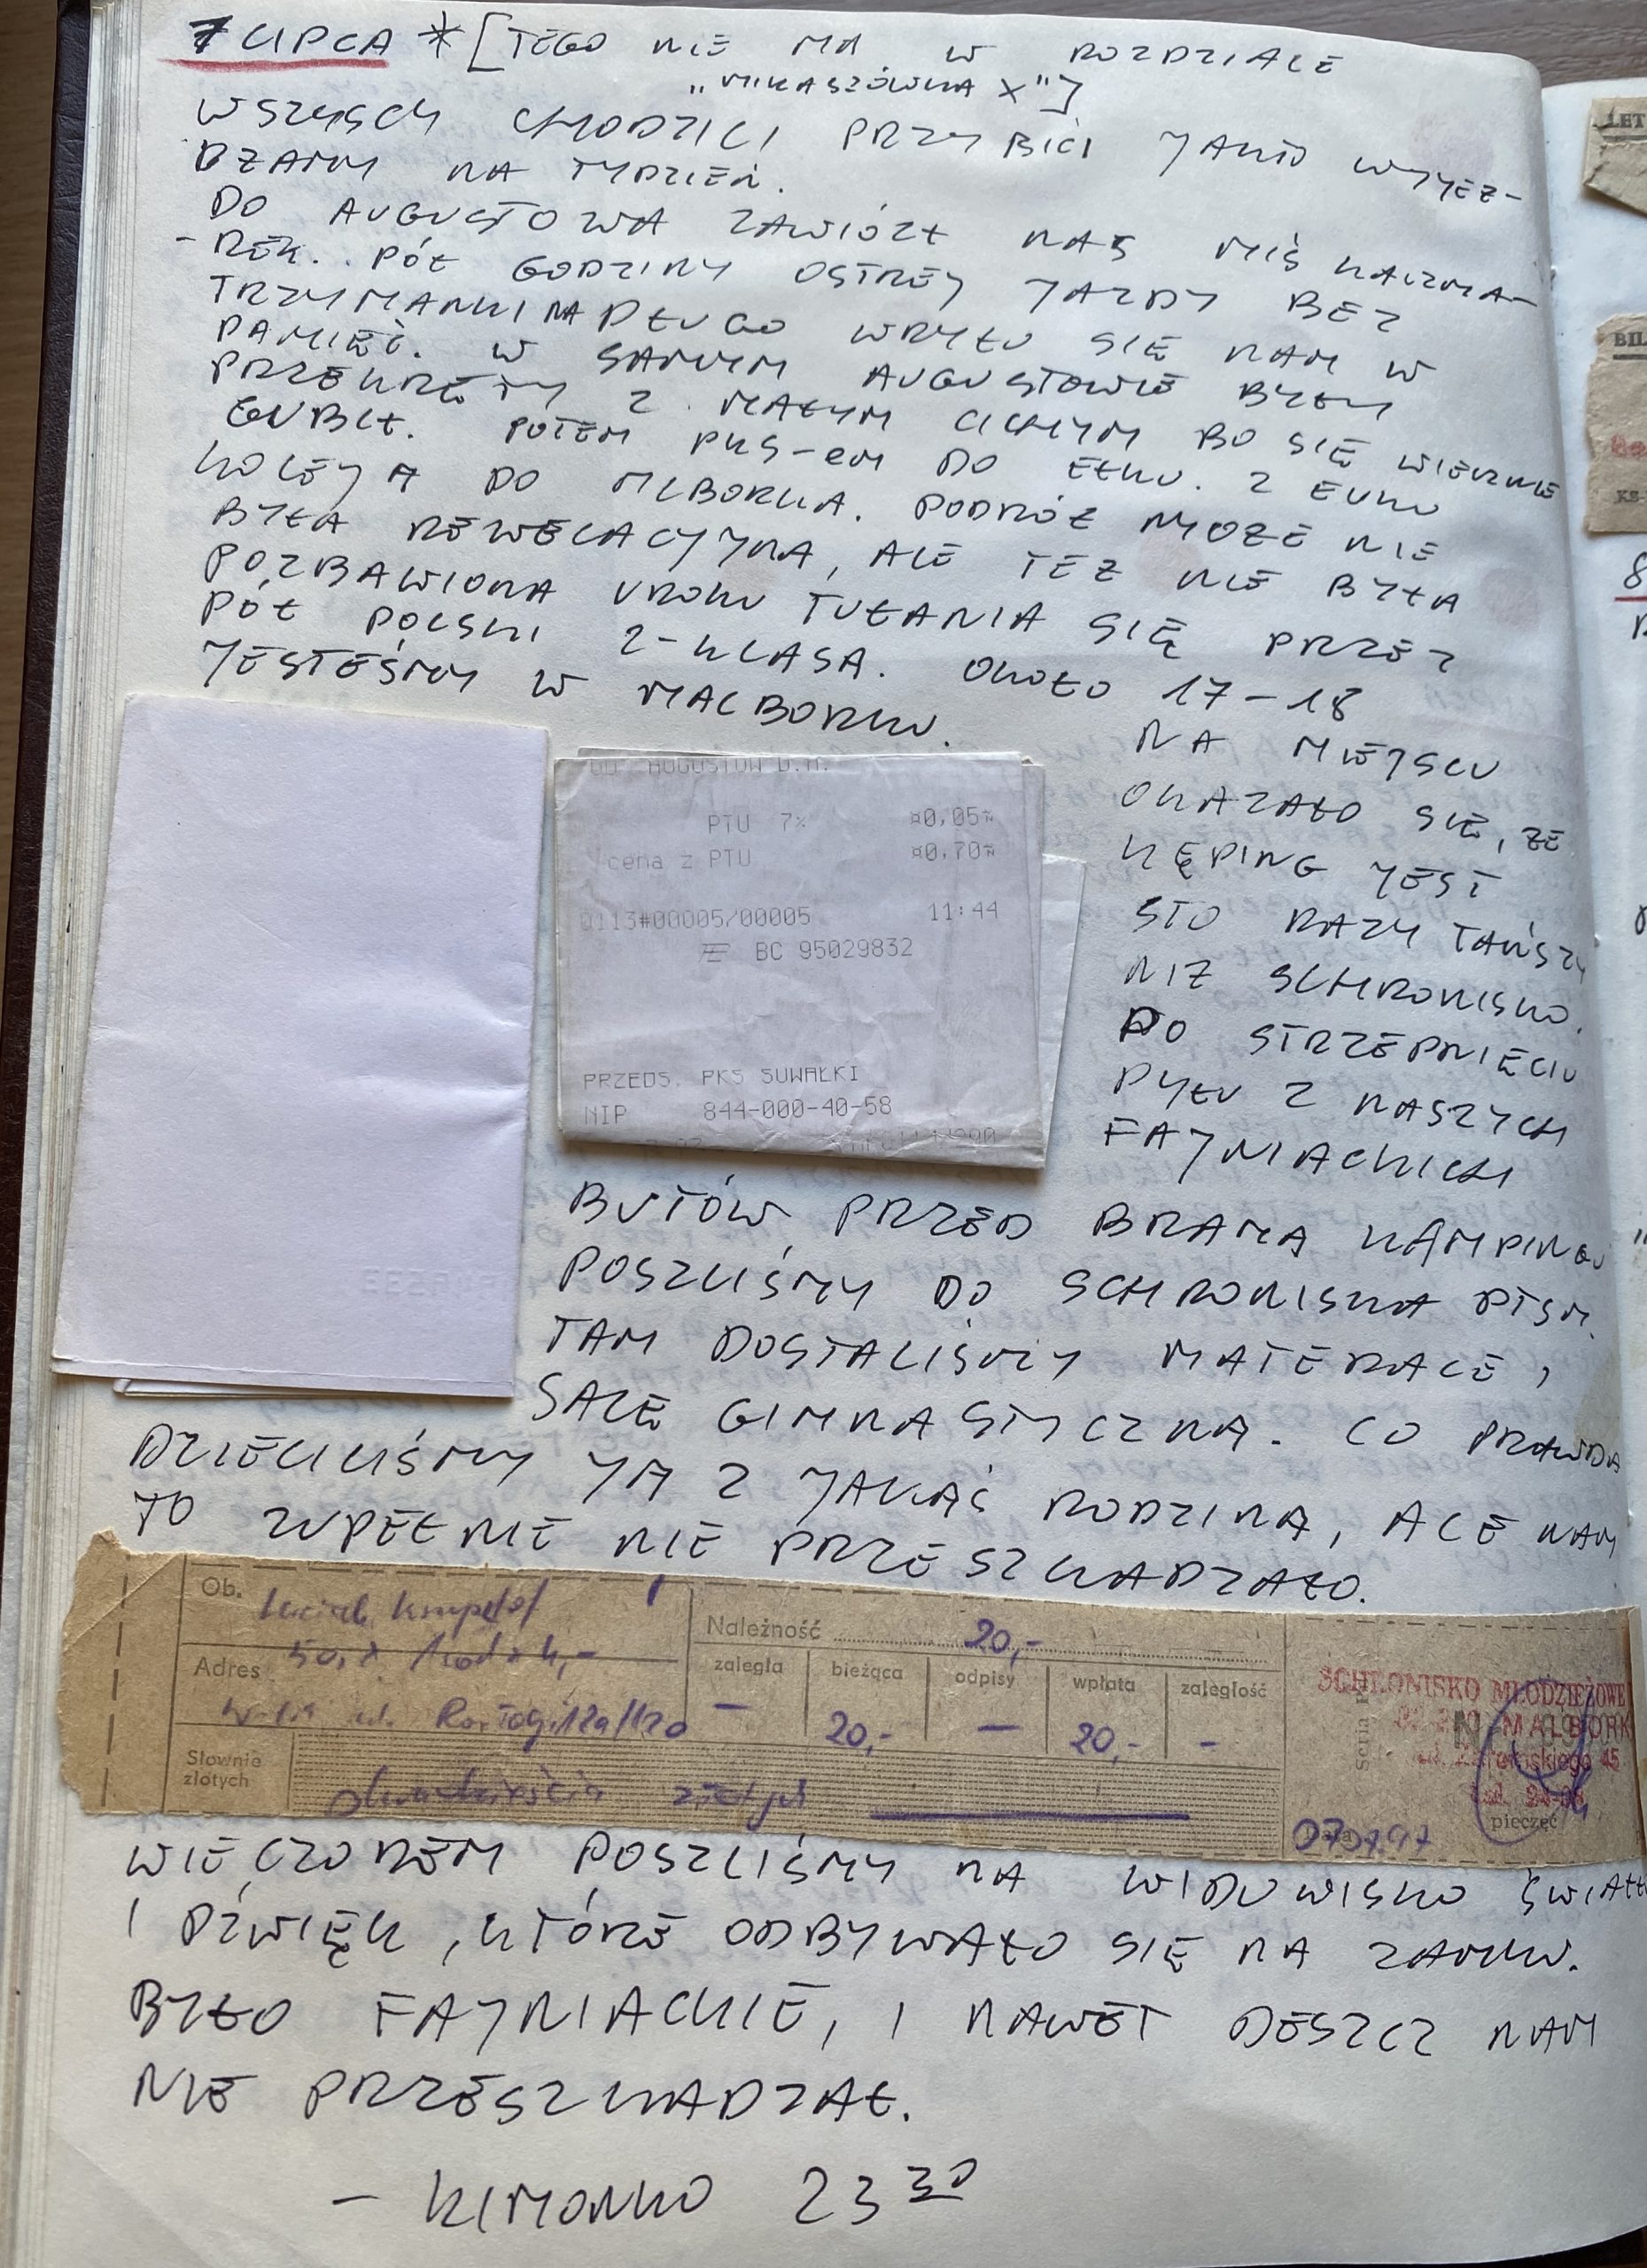 7 LIPCA * [TEGO NIE MA W ROZDZIALE
"MIKASZÓWKA X"]
WSZYSCY CHODZILI PRZYBICI JAKO WYJEŻ-
DŻAMY NA TYDZIEŃ.
DO AUGUSTOWA ZAWIÓZŁ NAS MIŚ KACZMA-
-REK. PÓŁ GODZINY OSTREJ JAZDY BEZ
TRZYMANKI NA DŁUGO WRYŁO SIĘ NAM W
PAMIĘĆ. W SAMYM AUGUSTOWIE BYŁY
PRZEKRĘTY Z MAŁYM CICHYM BO SIĘ WIECZNIE
GUBIŁ. POTEM PKS-em DO EŁKU. Z EŁKU
KOLEJĄ DO MLBORKA. PODRÓŻ MOŻE NIE
BYŁA REWELACYJNA, ALE TEŻ NIE BYŁA
POZBAWIONA UROKU TUŁANIA SIĘ PRZEZ
PÓŁ POLSKI 2-KLASĄ. OKOŁO 17-18
JESTEŚMY W MALBORKU.
NA MIEJSCU
OKAZAŁO SIĘ, ŻE
KĘPING JEST
STO RAZY TAŃSZY
NIŻ SCHRONISKO.
PO STRZEPNIĘCIU
PYŁU Z NASZYCH
FAJNIACKICH
BUTÓW PRZED BRAMĄ KAMPINGU
POSZLIŚMY DO SCHRONISKA PTSM.
TAM DOSTALIŚMY MATERACE,
SALĘ GIMNASTYCZNĄ. CO PRAWDA
DZIELILIŚMY JĄ Z JAKĄŚ RODZINĄ, ALE NAM
TO ZUPEŁNIE NIE PRZESZKADZAŁO.
OD AUGUSTÓW D.A.
PTU 7% ¤0,05¤
cena z PTU ¤0,70¤
0113#00005/00005 11:44
BC 95029832
PRZEDS. PKS SUWAŁKI
NIP 844-000-40-58
Ob.
Należność 20,-
Adres
zaległa bieżąca odpisy wpłata zaległość
- 20,- - 20,- -
Słownie
złotych
dwadzieścia złotych
SCHRONISKO MŁODZIEŻOWE
MALBORK
45
pieczęć
07.07.97
WIECZOREM POSZLIŚMY NA WIDOWISKO ŚWIATŁO
I DŹWIĘK, KTÓRE ODBYWAŁO SIĘ NA ZAMKU.
BYŁO FAJNIACKIE, I NAWET DESZCZ NAM
NIE PRZESZKADZAŁ.
- KIMONKO 23 30